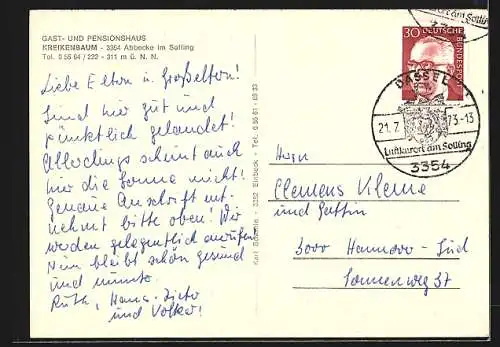 GAST- UND PENSIONSHAUS
KREIKENBAUM - 3354 Abbecke im Solling
Tel. 0 55 64 / 222 - 311 m Ü. N. N.
Liebe Eltern u. Großeltern!
Sind hier gut und
pünktlich gelandet!
Allerdings scheint auch
hier die Sonne nicht!
Genaue Anschrift ent-
nehmt bitte oben! Wir
werden gelegentlich anrufen.
Nun bleibt schön gesund
und munter.
Ruth, Hans-Dieter
und Volker!
Karl - 3352 Einbeck - Tel. 0 55 61
30 DEUTSCHE BUNDESPOST
Luftkurort am Solling
3354
DASSEL 1
21.7. 73-13
Luftkurort am Solling
3354
Herrn
Clemens Kleme
und Gattin
3000 Hannover-Süd
Sonnenweg 37